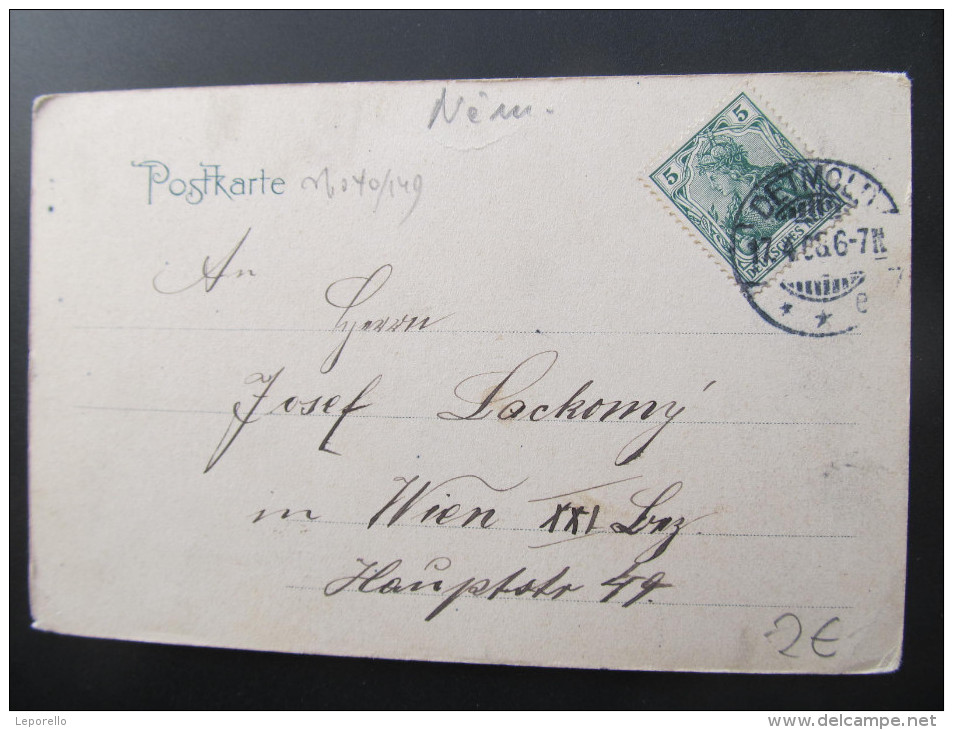 Něm.
Postkarte
5
5
DEUTSCHES
DETMOLD
6-7N
An
Herrn
Josef Lackomý
in Wien XXI Bez.
Hauptstr 49.
2€
Leporello
www.delcampe.net